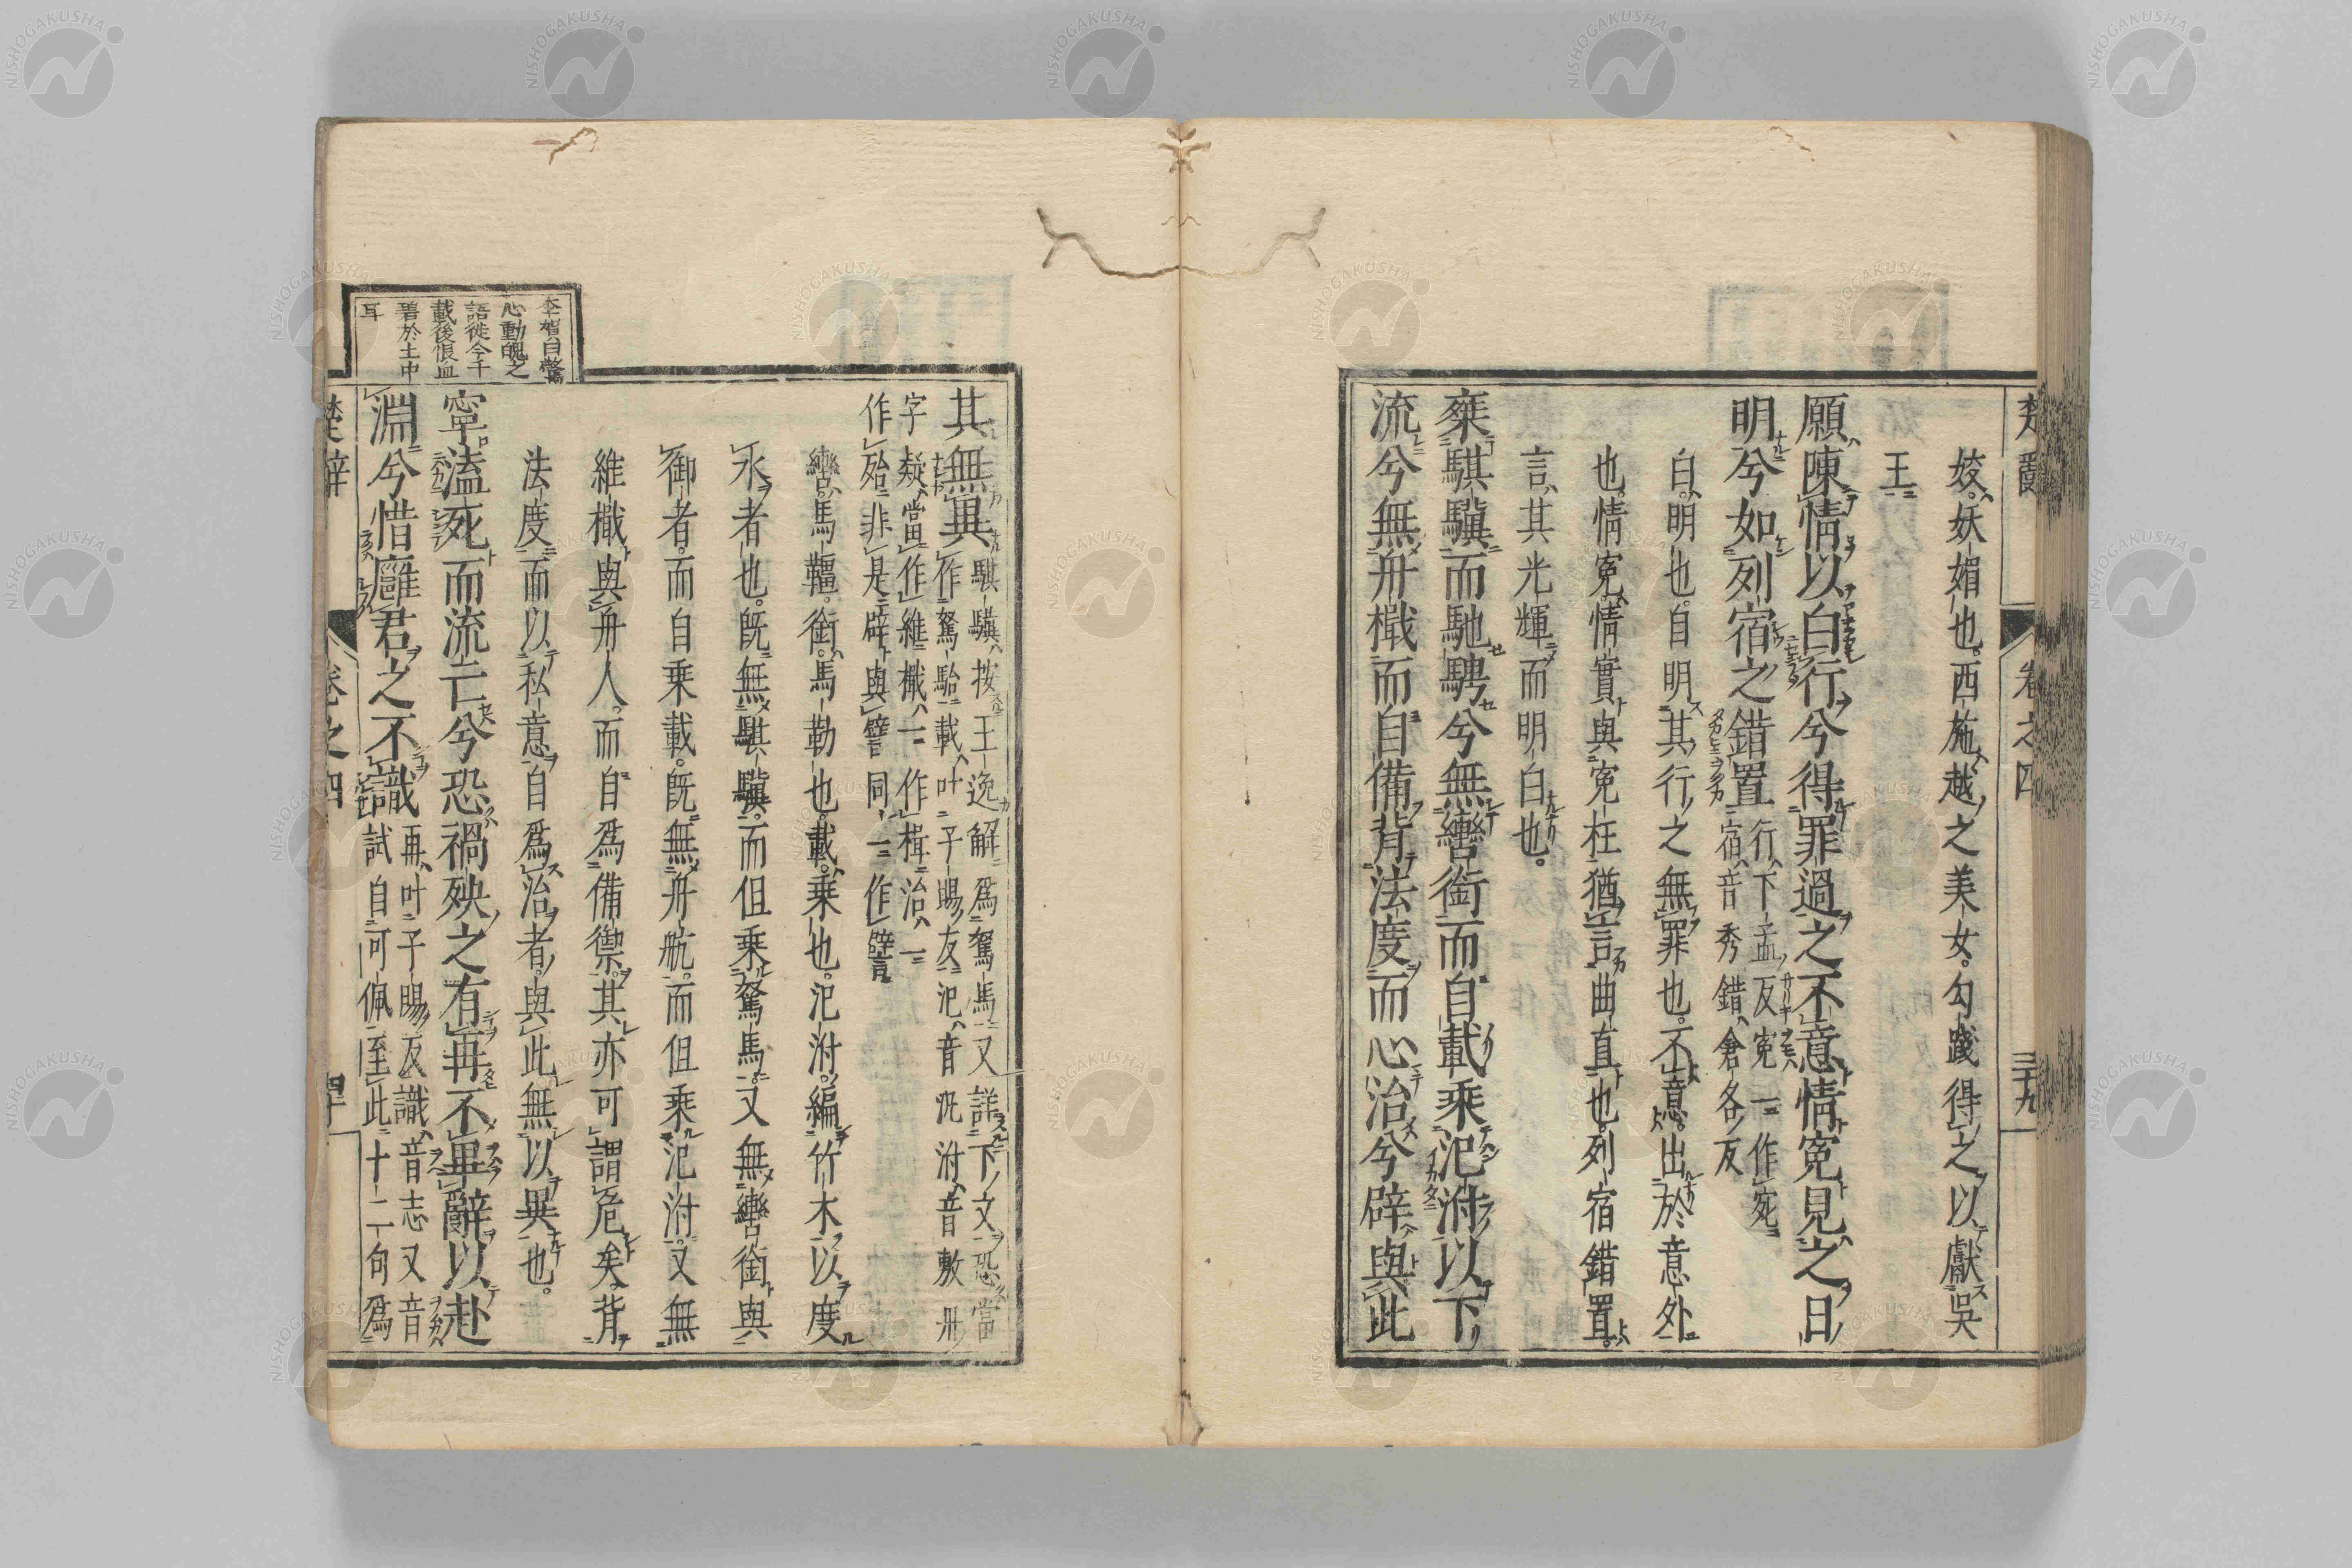 楚辭 卷之四 三十九
姣。妖媚也。西施越之美女。勾踐得之以獻吳
王
願陳情以白行兮得罪過之不意情冤見之日
明兮如列宿之錯置行下孟反冤一作宛
宿音秀錯倉各反
白。明也。自明其行之無罪也。不意。出於意外
也。情冤。情實與冤枉猶言曲直也。列宿錯置。
言其光輝而明白也。
椉騏驥而馳騁兮無轡銜而自載乘氾泭以下
流兮無舟檝而自備背法度而心治兮辟與此
其無異騏驥按王逸解爲駑馬又詳下文恐當
作駑駘載叶子賜反氾音汎泭音敷舟
字疑當作維檝一作楫治一
作殆非是辟與譬同一作譬
轡。馬韁。銜。馬勒也。載。乘也。氾泭。編竹木以度
水者也。既無騏驥。而但乘駑馬。又無轡銜與
御者。而自乘載。既無舟航。而但乘氾泭。又無
維檝與舟人。而自爲備禦。其亦可謂危矣。背
法度而以私意自爲治者。與此無以異也。
寧溘死而流亡兮恐禍殃之有再不畢辭以赴
淵兮惜廱君之不識再叶子賜反識音志又音
試自可佩至此十二句爲
李賀曰驚
心動魄之
語從今千
載後恨血
碧於土中
耳
楚辭 卷之四 四十
NISHOGAKUSHA